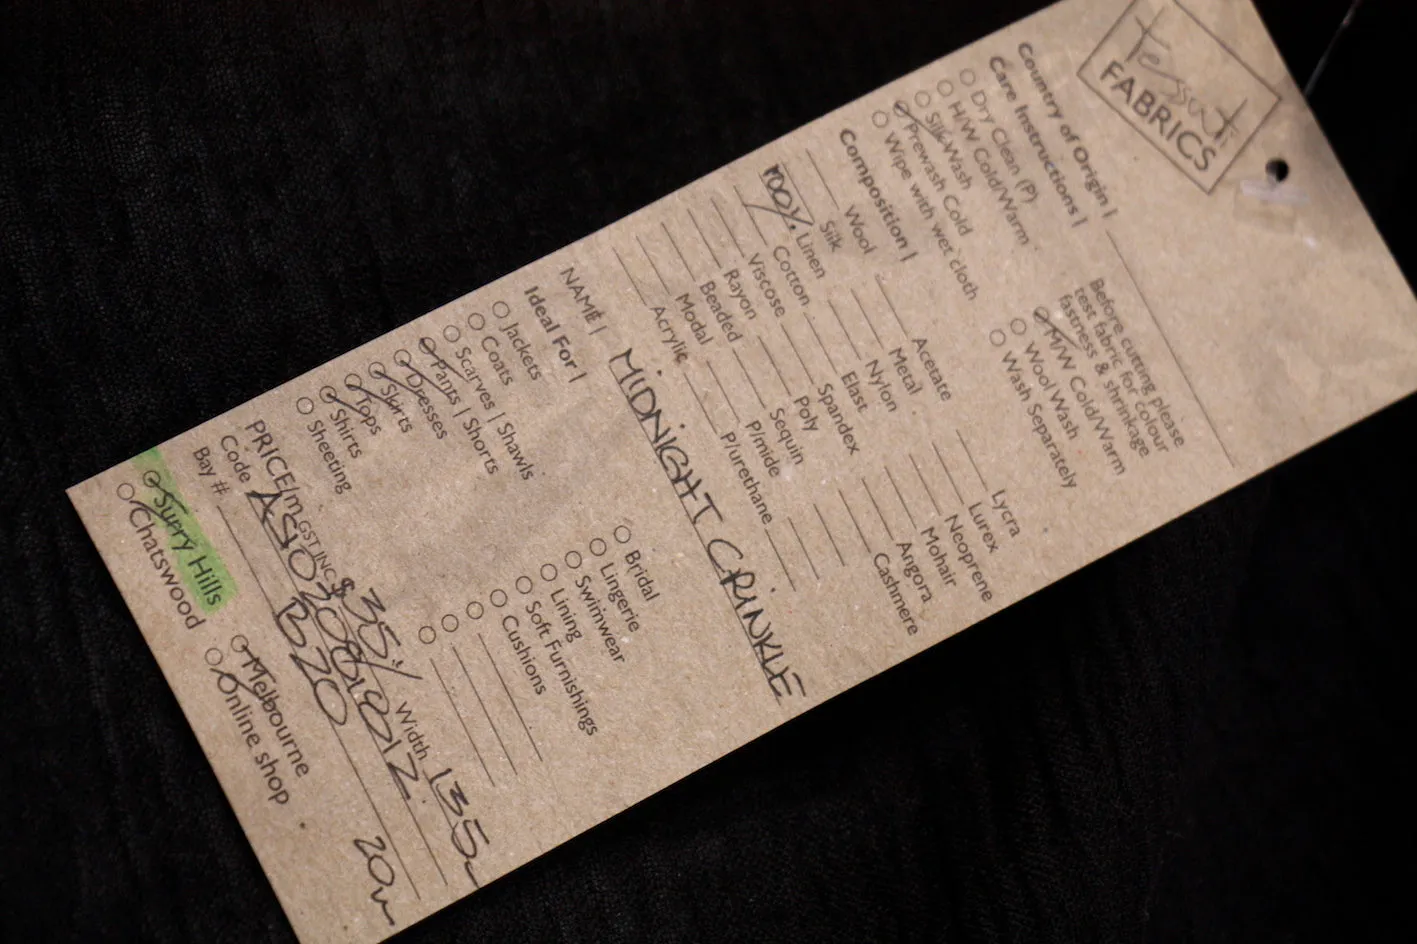 Tessuti
FABRICS
Country of Origin |
Care Instructions |
Dry Clean (P)
H/W Cold/Warm
Silk Wash
Prewash Cold
Wipe with wet cloth
Before cutting please
test fabric for colour
fastness & shrinkage
M/W Cold/Warm
Wool Wash
Wash Separately
Composition |
Wool
Silk
100% Linen
Cotton
Viscose
Rayon
Beaded
Modal
Acrylic
Acetate
Metal
Nylon
Elast
Spandex
Poly
Sequin
P/mide
P/urethane
Lycra
Lurex
Neoprene
Mohair
Angora
Cashmere
NAME | MIDNIGHT CRINKLE
Ideal For |
Jackets
Coats
Scarves | Shawls
Pants | Shorts
Dresses
Skirts
Tops
Shirts
Sheeting
Bridal
Lingerie
Swimwear
Lining
Soft Furnishings
Cushions
PRICE/m GST INC $35/ Width 135
Code
Bay # B20 20m
Surry Hills
Chatswood
Melbourne
Online shop